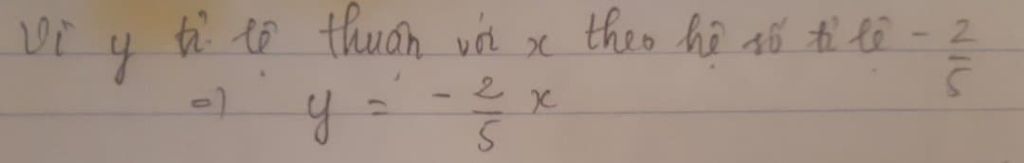 Vì y tỉ lệ thuận với x theo hệ số tỉ lệ -2/5
=> y = -2/5 x